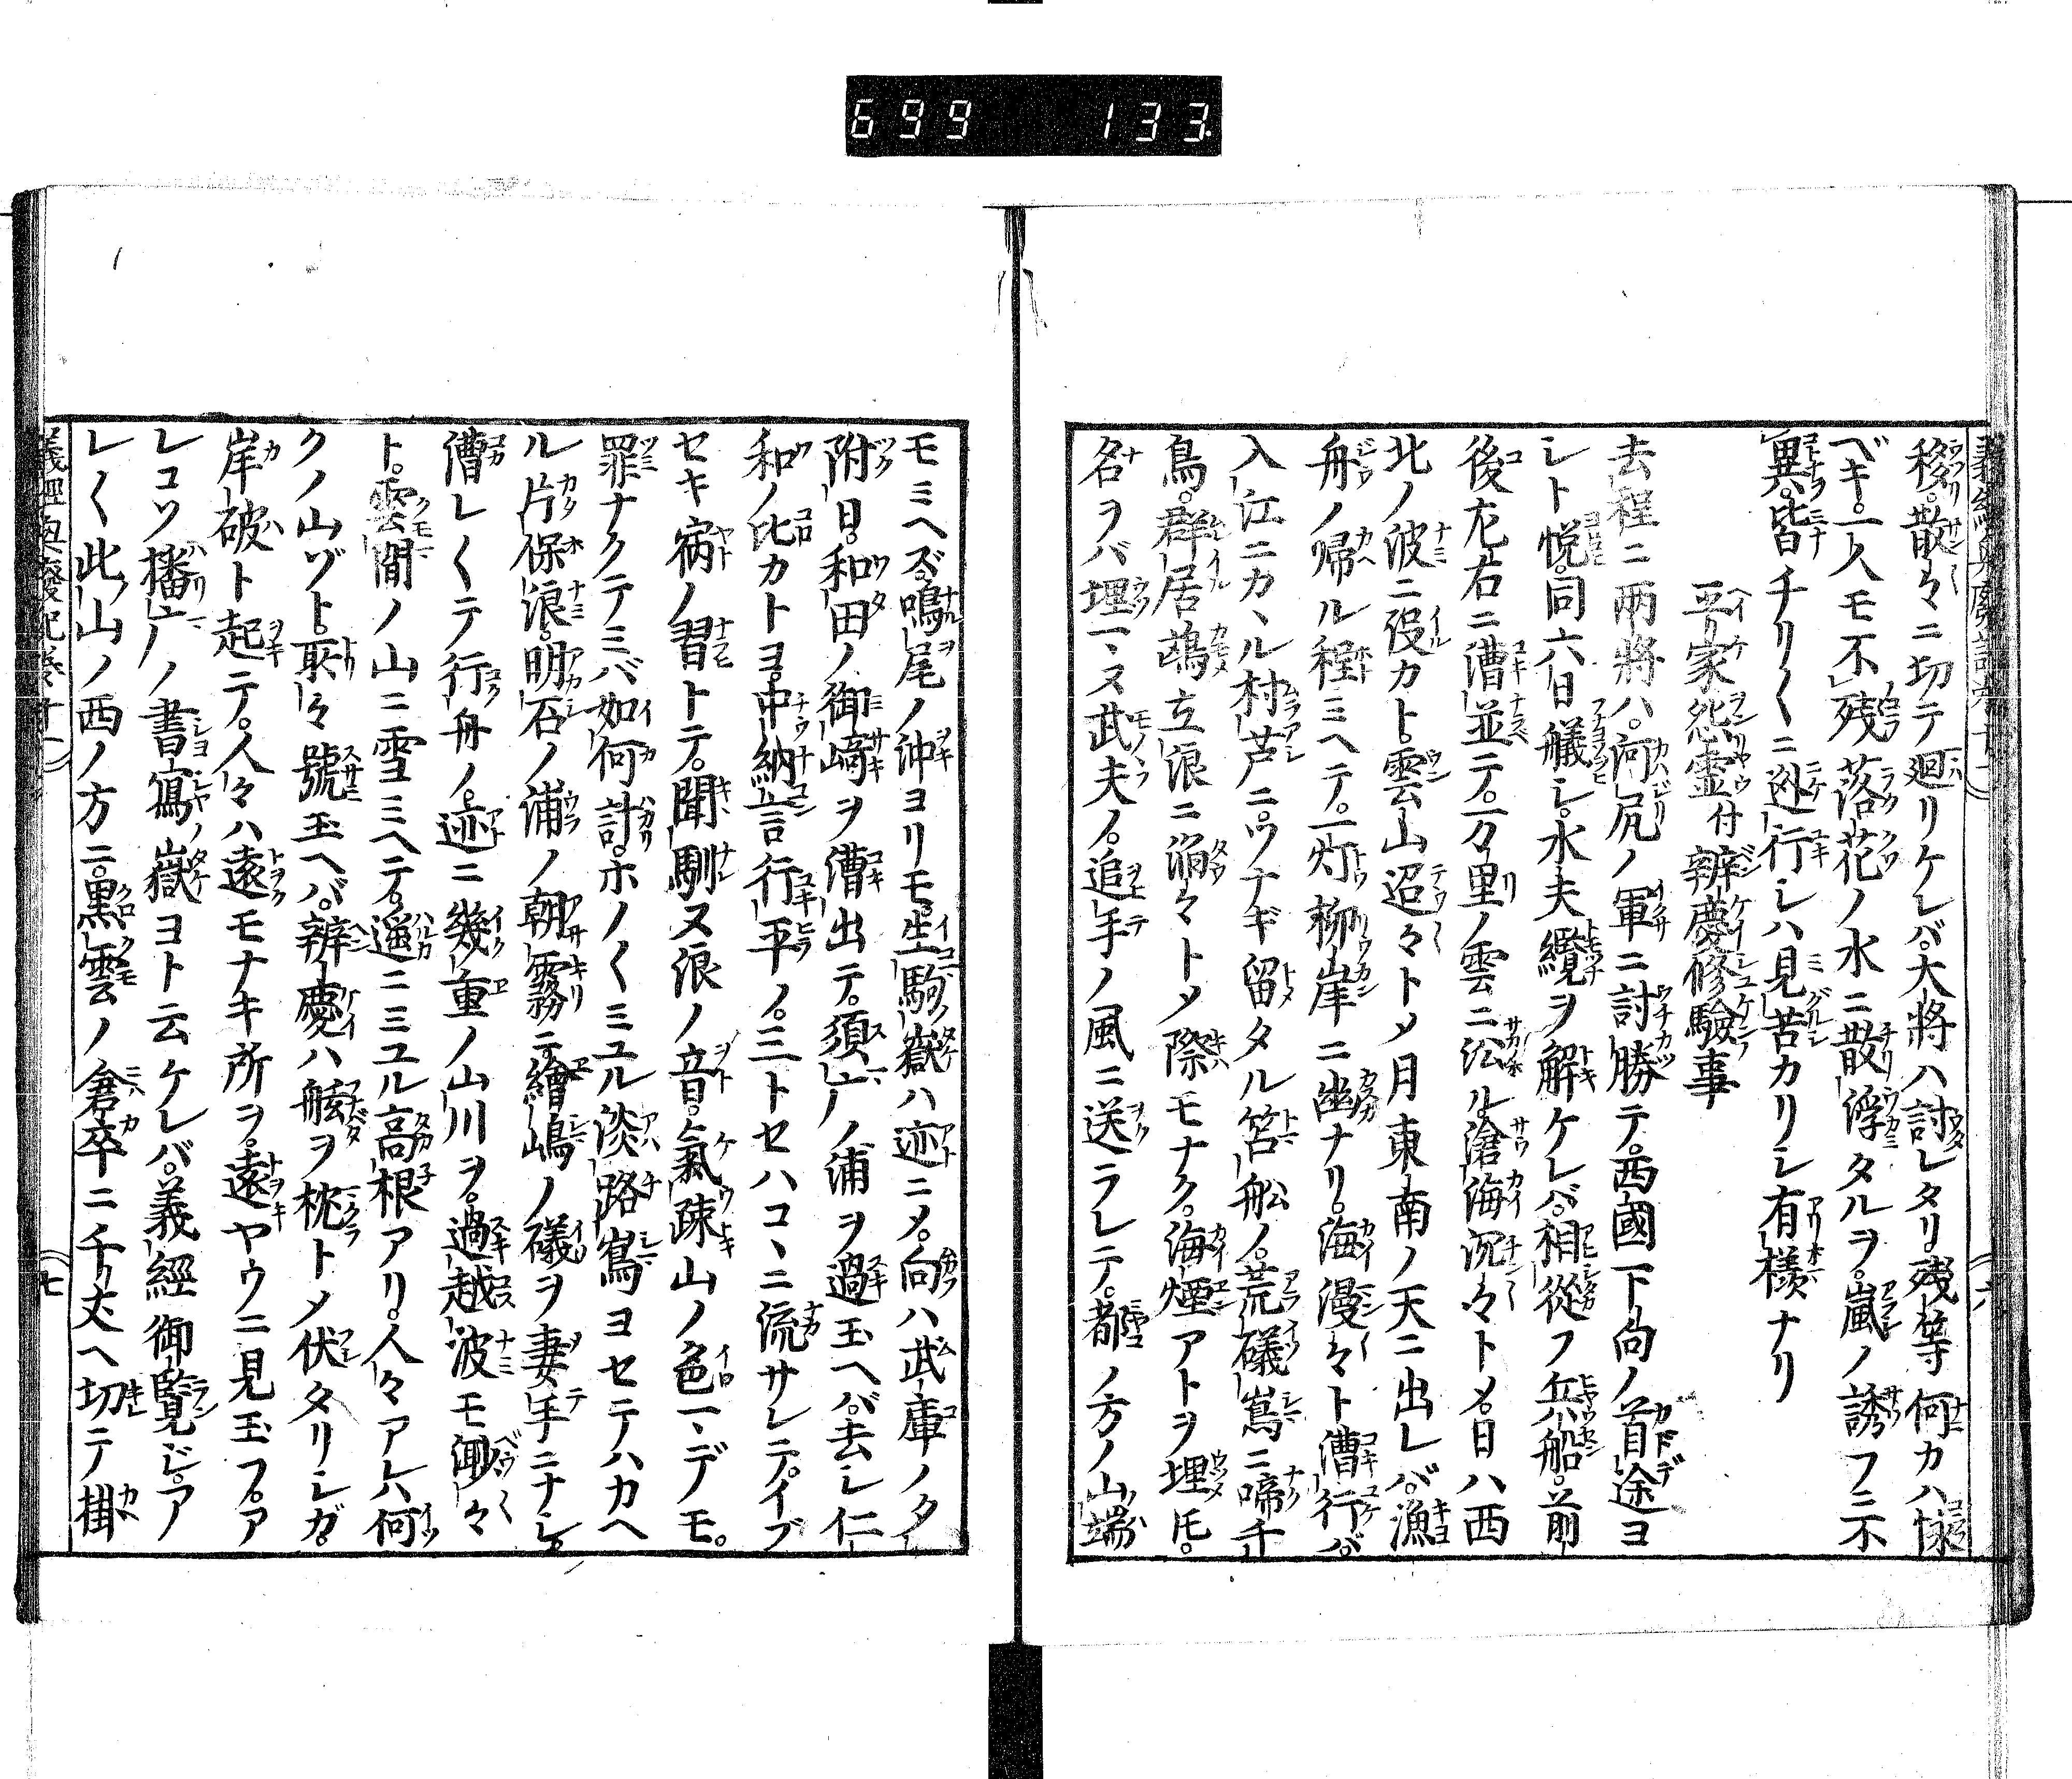 699 133
移。散々ニ切テ廻リケレバ。大将ハ討レタリ。残等何カハ怺
ベキ。一人モ不残落花ノ水ニ散浮タルヲ。嵐ノ誘フニ不
異。皆チリ〱ニ迯行シハ見苦カリシ有様ナリ
平家怨霊付辨慶修驗事
去程ニ兩將ハ。河尻ノ軍ニ討勝テ。西國下向ノ首途ヨ
シト悦。同六日艤シ。水夫纜ヲ解ケレバ。相從フ兵船。前
後左右ニ漕並テ。万里ノ雲ニ泝ル。滄海沉々トメ。日ハ西
北ノ波ニ没カト。雲山迢々トメ月東南ノ天ニ出レバ。漁
舟ノ帰ル程ミヘテ。一灯柳岸ニ幽ナリ。海漫々ト漕行バ。
入江ニカヽル村芦ニ。ツナギ留タル笘舩ノ。荒礒嶌ニ啼千
鳥。群居鴎立浪ニ滔々トメ際モナク。海煙アトヲ埋ト𪜈。
名ヲバ埋マヌ武夫ノ。追手ノ風ニ送ラレテ。都ノ方ノ山端
モミヘズ。鳴尾ノ沖ヨリモ。生駒ノ嶽ハ迹ニメ。向ハ武庫ノタイ
附日。和田ノ御﨑ヲ漕出テ。須广ノ浦ヲ過玉ヘバ。去シ仁
和ノ比カトヨ。中納言行平ノ。三トセハコヽニ流サレテ。イブ
セキ病ノ習トテ。聞馴ヌ浪ノ音。氣疎山ノ色マデモ。
罪ナクテミバ如何計。ホノ〱ミユル淡路嶌ヨセテハカヘ
ル片保浪。明石ノ浦ノ朝霧ニ。繪嶋ノ礒ヲ妻手ニナシ。
漕レ〱テ行舟ノ。迹ニ幾重ノ山川ヲ。過越波モ渺々
ト。雲間ノ山ニ雪ミヘテ。遥ニミユル高根アリ。人々アレハ何
クノ山ゾト。取々號玉ヘバ。辨慶ハ舷ヲ枕トメ伏タリシガ。
岸破ト起テ。人々ハ遠モナキ所ヲ。遠ヤウニ見玉フ。ア
レコソ播广ノ書寫ノ嶽ヨト云ケレバ。義經御覧ジ。ア
レ〱此山ノ西ノ方ニ。黒雲ノ倉卒ニ千丈ヘ切テ掛
義經興廢記巻十一
六
七